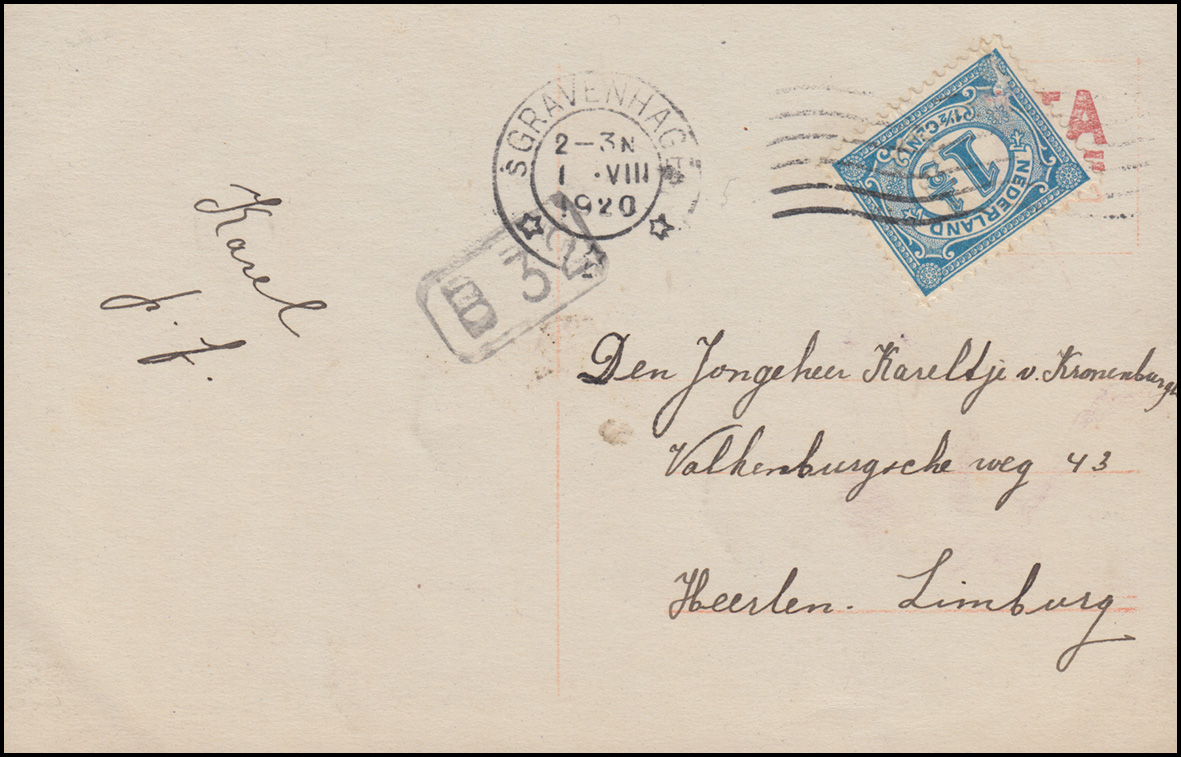 'S GRAVENHAGE
2-3N
1 .VIII
1920
NEDERLAND
1½
1½ CENT
Karel
B 32
Den Jongeheer Kareltje v. Kronenburg
Valkenburgsche weg 43
Heerlen. Limburg